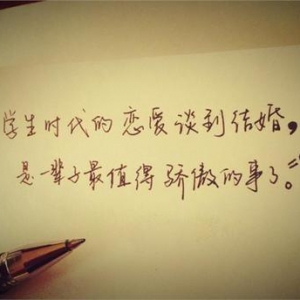 学生时代的恋爱谈到结婚，
是一辈子最值得骄傲的事了。"